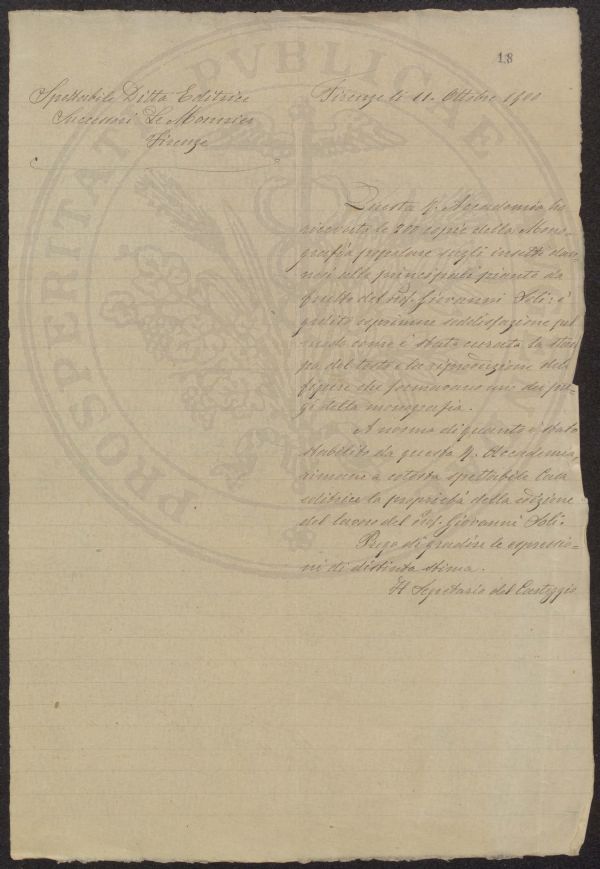 18
Spettabile Ditta Editrice
Successori Le Monnier
Firenze
Firenze li 11. Ottobre 1900
Questa R. Accademia ha
ricevuto le 300 copie della Mono-
grafia popolare sugli insetti dan-
nosi alle principali piante da
frutto del prof. Giovanni Soli: è
gradito esprimere soddisfazione pel
modo come è stata curata la stam-
pa del testo e la riproduzione delle
figure che formavano uno dei pre-
gi della monografia.
A norma di quanto è stato
stabilito da questa R. Accademia,
rimane a cotesta spettabile Casa
editrice la proprietà della edizione
del lavoro del prof. Giovanni Soli.
Prego di gradire le espressio-
ni di distinta stima.
Il Segretario del Carteggio
PROSPERITATI PVBLICAE